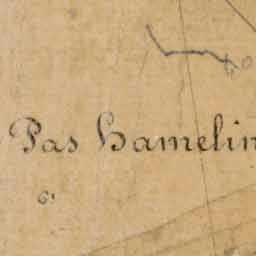 Pas Hamelin